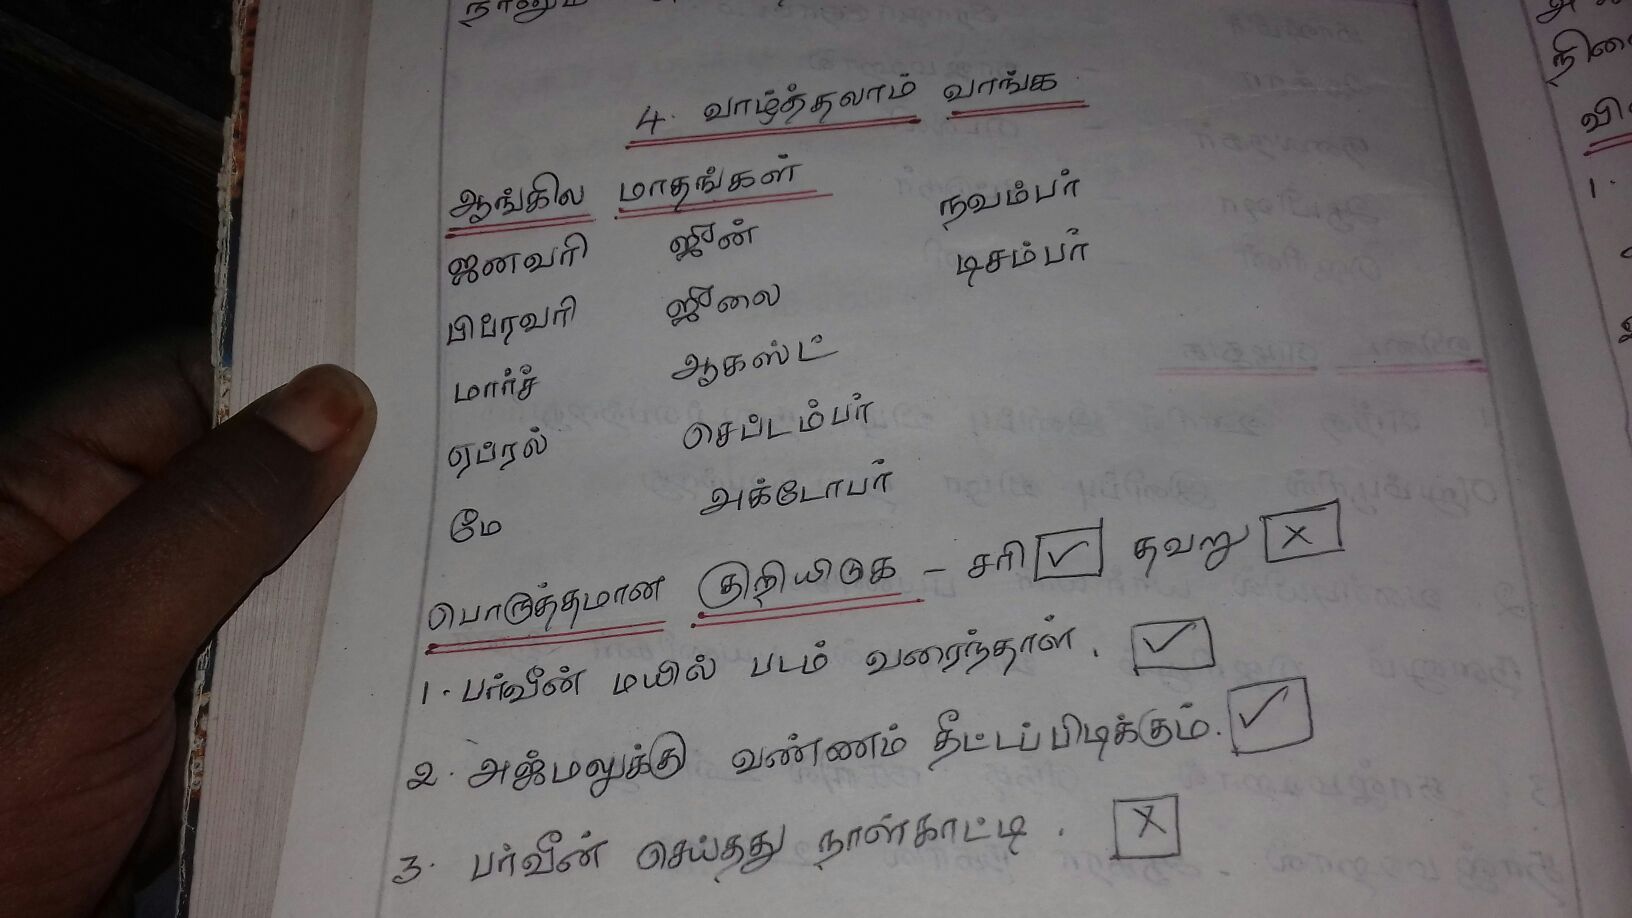 4. வாழ்த்தலாம் வாங்க
ஆங்கில மாதங்கள்
ஜனவரி ஜூன் நவம்பர்
பிப்ரவரி ஜூலை டிசம்பர்
மார்ச் ஆகஸ்ட்
ஏப்ரல் செப்டம்பர்
மே அக்டோபர்
பொருத்தமான குறியிடுக - சரி ✓ தவறு ×
1. பர்வீன் மயில் படம் வரைந்தாள். ✓
2. அஜ்மலுக்கு வண்ணம் தீட்டப்பிடிக்கும். ✓
3. பர்வீன் செய்தது நாள்காட்டி. ×